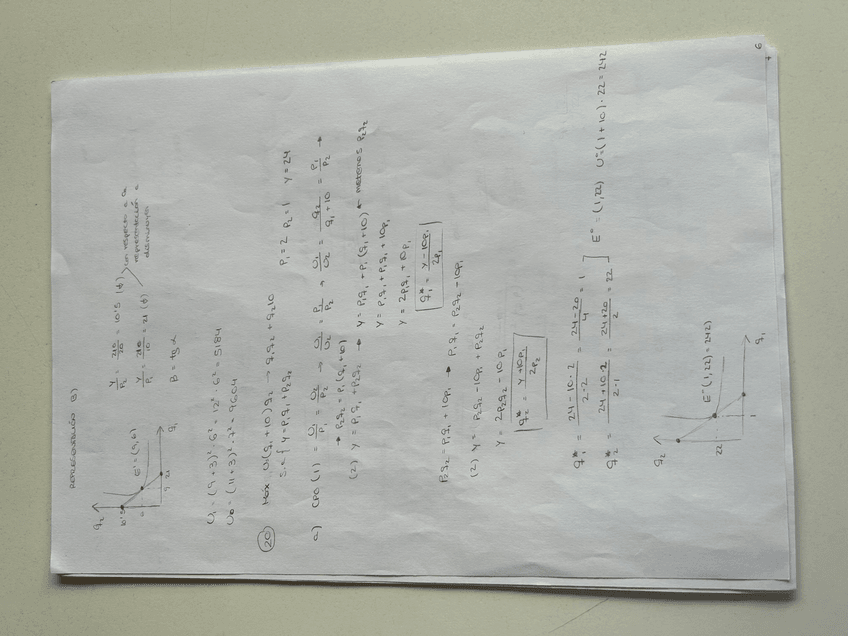 REPRESENTACIÓN B)
q₂
10'5
6
E' = (9,6)
9
21
q₁
Y/P₂ = 210/20 = 10'5 (↓)
Y/P₁ = 210/10 = 21 (↓)
con respecto a la representación a disminuyen
B = tg α
U₁ = (9+3)² · 6² = 12² · 6² = 5184
U₀ = (11+3)² · 7² = 9604
20 Max U(q₁+10)q₂ → q₁q₂ + q₂10
s.a { Y = P₁q₁ + P₂q₂
P₁ = 2 P₂ = 1 Y = 24
a) CPO (1) = U₁/P₁ = U₂/P₂ → U₁/U₂ = P₁/P₂ → U₁/U₂ = q₂/(q₁+10) = P₁/P₂ →
→ P₂q₂ = P₁(q₁+10)
(2) Y = P₁q₁ + P₂q₂ → Y = P₁q₁ + P₁(q₁+10) ← metemos P₂q₂
Y = P₁q₁ + P₁q₁ + 10P₁
Y = 2P₁q₁ + 10P₁
q₁* = (Y - 10P₁)/2P₁
P₂q₂ = P₁q₁ + 10P₁ → P₁q₁ = P₂q₂ - 10P₁
(2) Y = P₂q₂ - 10P₁ + P₂q₂
Y = 2P₂q₂ - 10P₁
q₂* = (Y + 10P₁)/2P₂
q₁* = (24 - 10·2)/(2·2) = (24-20)/4 = 1
q₂* = (24 + 10·2)/(2·1) = (24+20)/2 = 22
] E* = (1,22) U* = (1+10) · 22 = 242
q₂
22
E* (1,22) = 242)
1
q₁
6